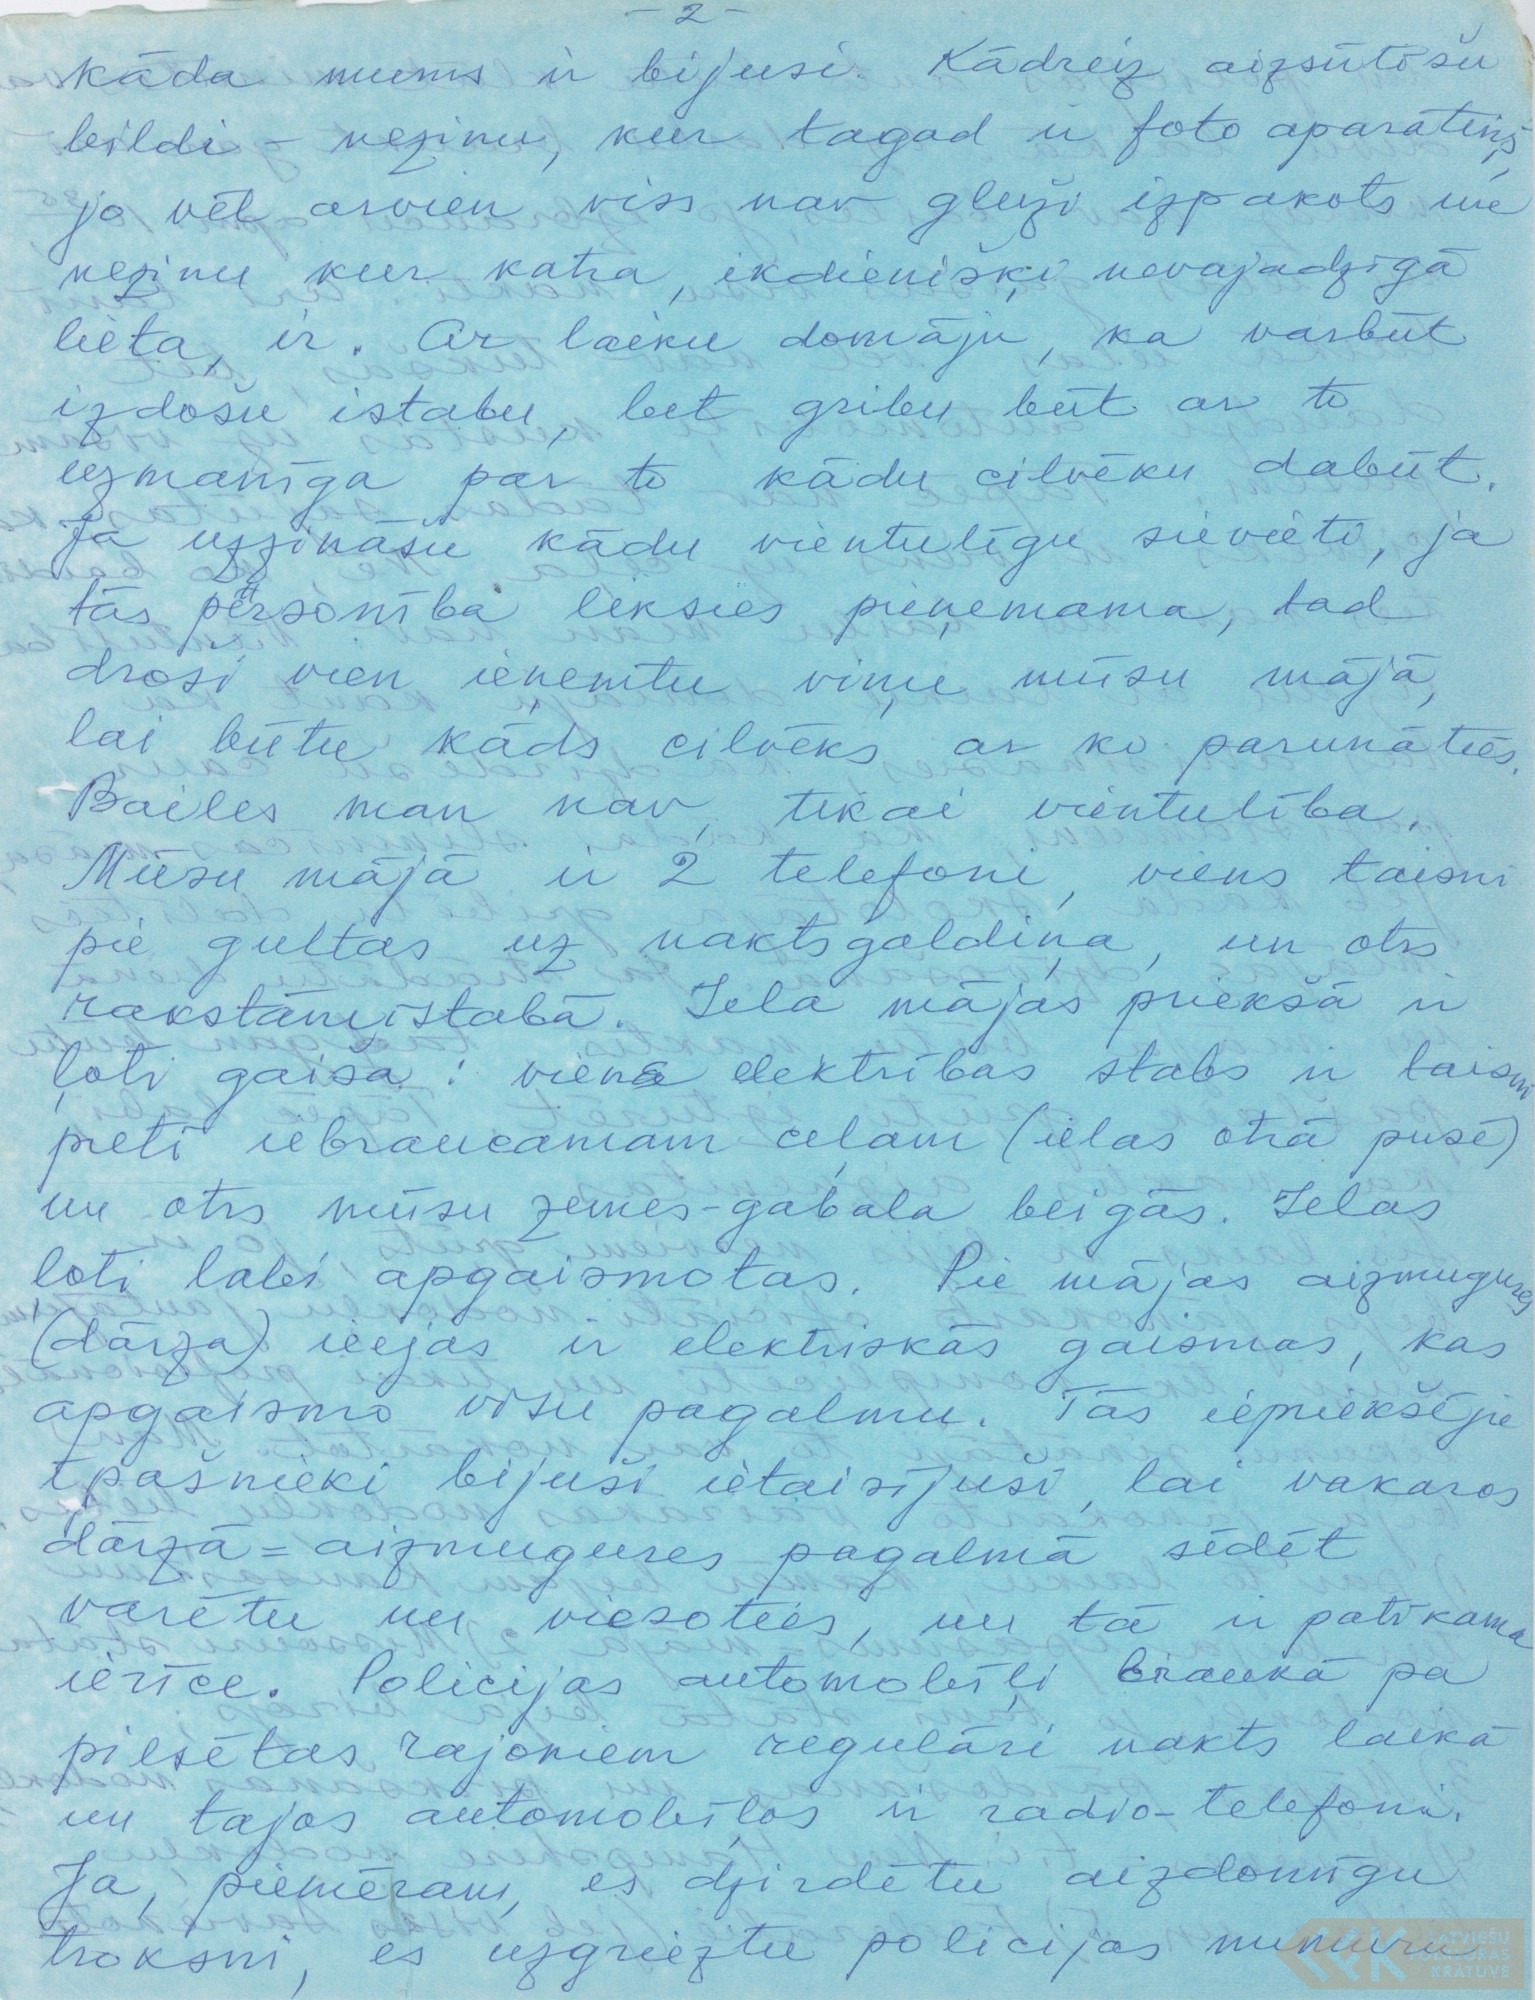 - 2 -
kāda mums ir bijusi. Kādreiz aizsūtīšu
bildi – nezinu, kur tagad ir foto aparātiņš,
jo vēl arvien viss nav gluži izpakots un
nezinu kur katra, ikdienišķi nevajadzīgā
lieta, ir. Ar laiku domāju, ka varbūt
izdošu istabu, bet gribu būt ar to
uzmanīga par to kādu cilvēku dabūt.
Ja uzzināšu kādu vientulīgu sievieti, ja
tās pērsonība liksies pieņemama, tad
droši vien ieņemtu viņu mūsu mājā,
lai būtu kāds cilvēks ar ko parunāties.
Bailes man nav, tikai vientulība.
Mūsu mājā ir 2 telefoni, viens taisni
pie gultas uz naktsgaldiņa, un otrs
rakstāmistabā. Iela mājas priekšā ir
ļoti gaiša: viens elektrības stabs ir taisni
pretī iebraucamam ceļam (ielas otrā pusē)
un otrs mūsu zemes-gabala beigās. Ielas
ļoti labi apgaismotas. Pie mājas aizmugures
(dārza) ieejas ir elektriskās gaismas, kas
apgaismo visu pagalmu. Tās iepriekšējie
īpašnieki bijuši ietaisījuši, lai vakaros
dārzā = aizmugures pagalmā sēdēt
varētu un viesoties, un tā ir patīkama
ierīce. Policijas automobīļi braukā pa
pilsētas rajoniem regulāri nakts laikā
un tajos automobīļos ir radio-telefoni.
Ja, piemēram, es dzirdētu aizdomīgu
troksni, es uzgrieztu policijas numuru
LATVIEŠU
FOLKLORAS
KRĀTUVE